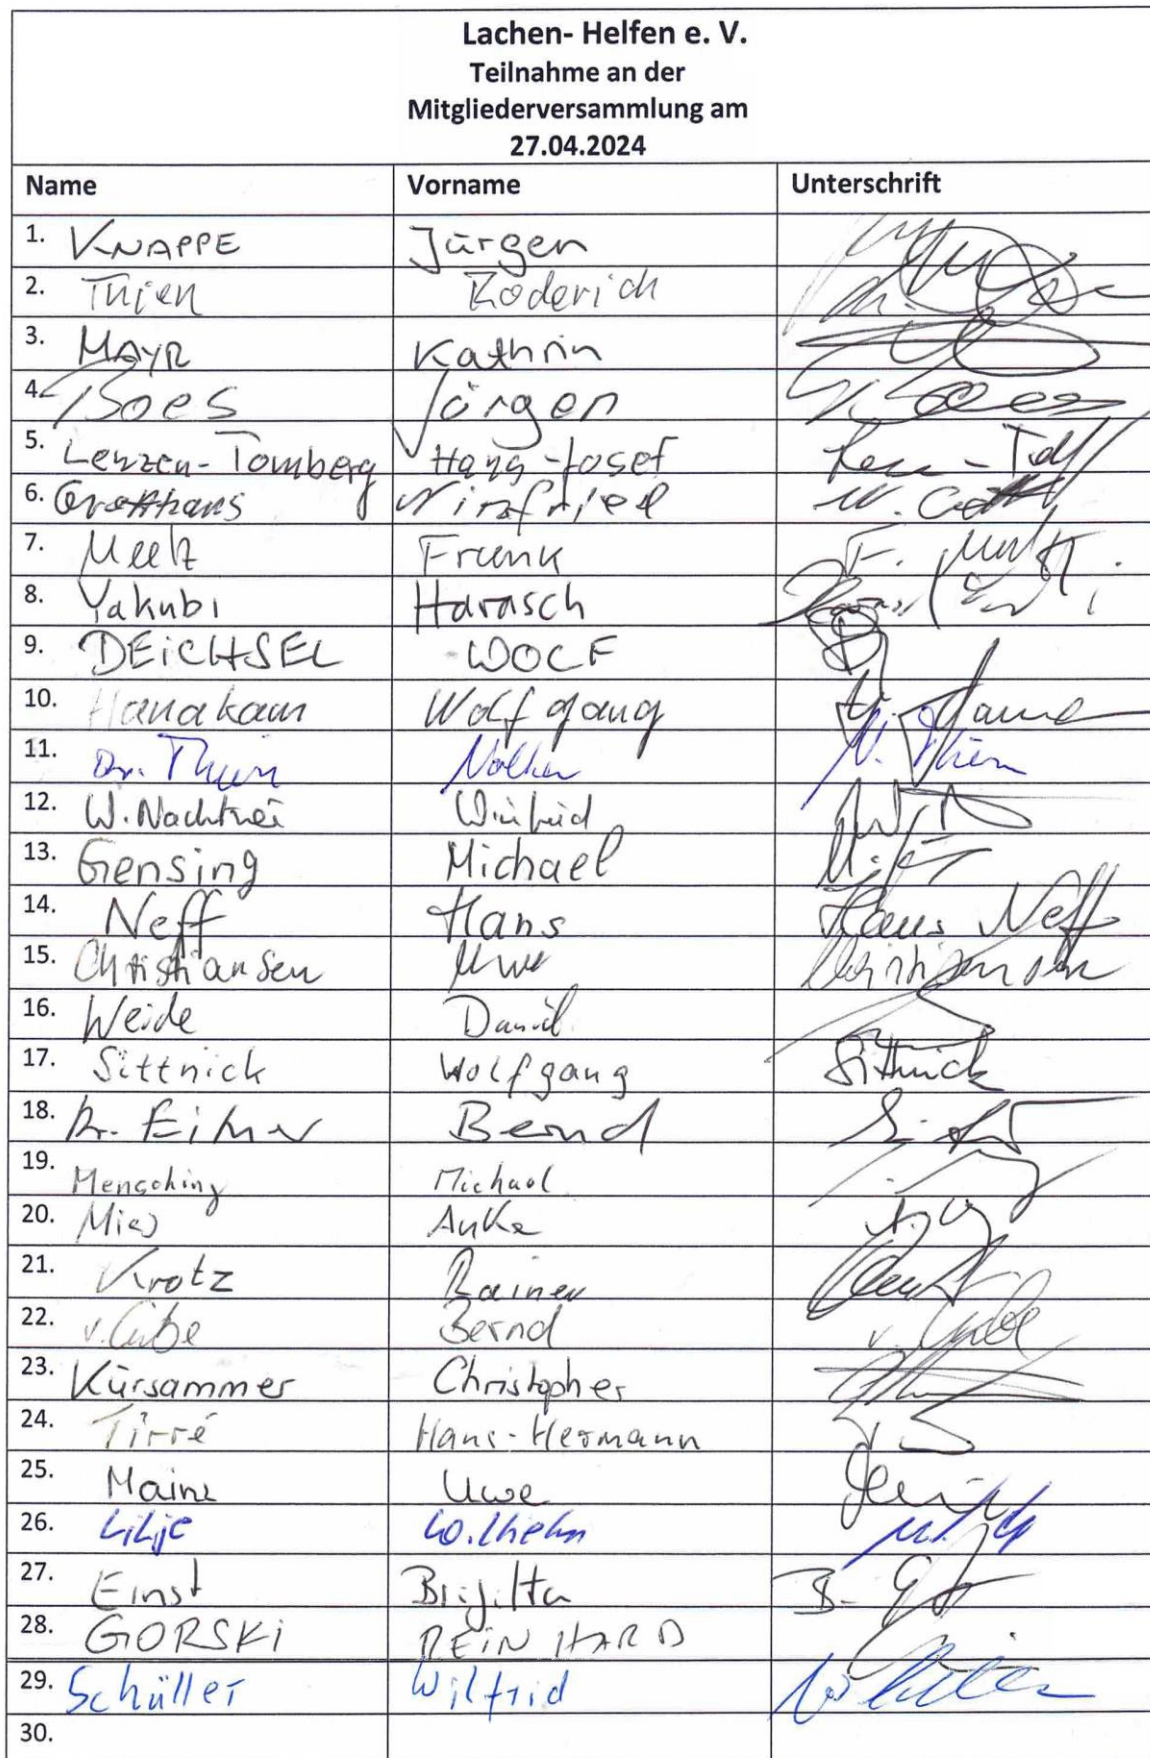 Lachen- Helfen e. V.
Teilnahme an der
Mitgliederversammlung am
27.04.2024
Name Vorname Unterschrift
1. KNAPPE Jürgen
2. Thien Roderich
3. MAYR Kathrin
4. Boes Jörgen
5. Lenzen-Tomberg Hans-Josef
6. Grotthaus Winfried
7. Frank
8. Yakubi Harasch
9. DEiCHSEL WOLF
10. Hanakam Wolfgang
11. Dr. Thien Volker V. Thien
12. W. Nachtwei Winfried
13. Gensing Michael
14. Neff Hans Hans Neff
15. Christiansen Uwe Christiansen
16. Weide Daniel
17. Sittnick Wolfgang Sittnick
18. Dr. Bernd
19. Mensching Michael
20. Mies Anke
21. Krotz Rainer
22. v. Cube Bernd v. Cube
23. Kürsammer Christopher
24. Tirré Hans-Hermann
25. Mainz Uwe
26. Lilje Wilhelm
27. Ernst Brigitta
28. GORSKi REiNHARD
29. Schüller Wilfrid
30.